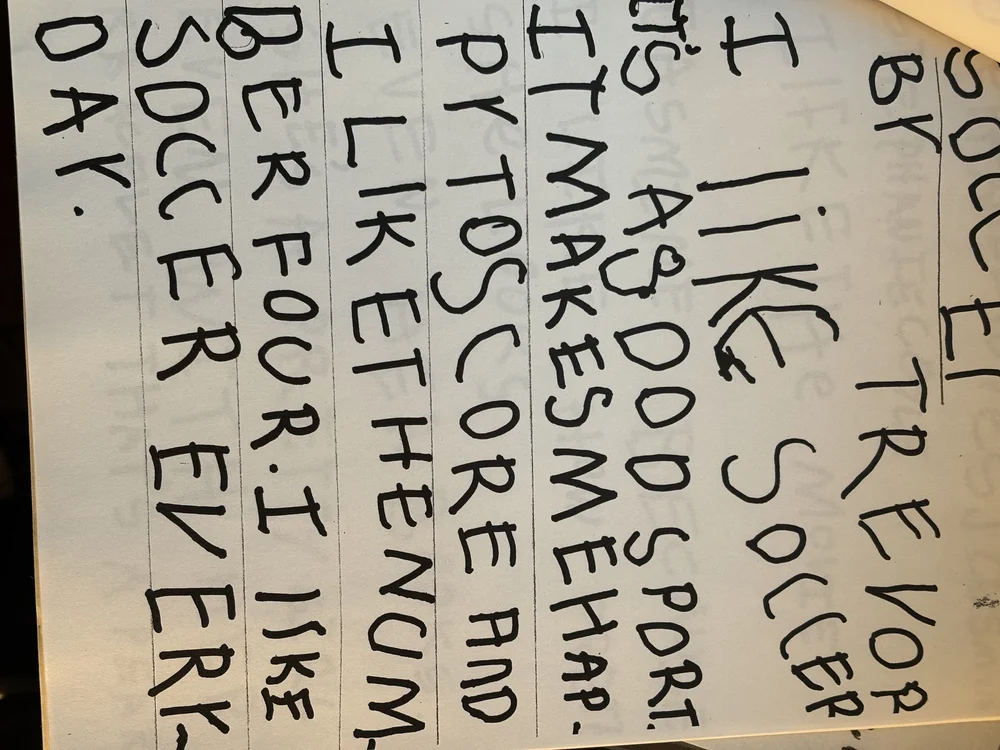 SOCCER
BY TREVOR
I liKE SOCCER
IT'S A GOOD SPORT.
IT MAKES ME HAP-
PY TO SCORE AND
I LIKE THE NUM-
BER FOUR. I lIKE
SOCCER EVERY-
DAY.